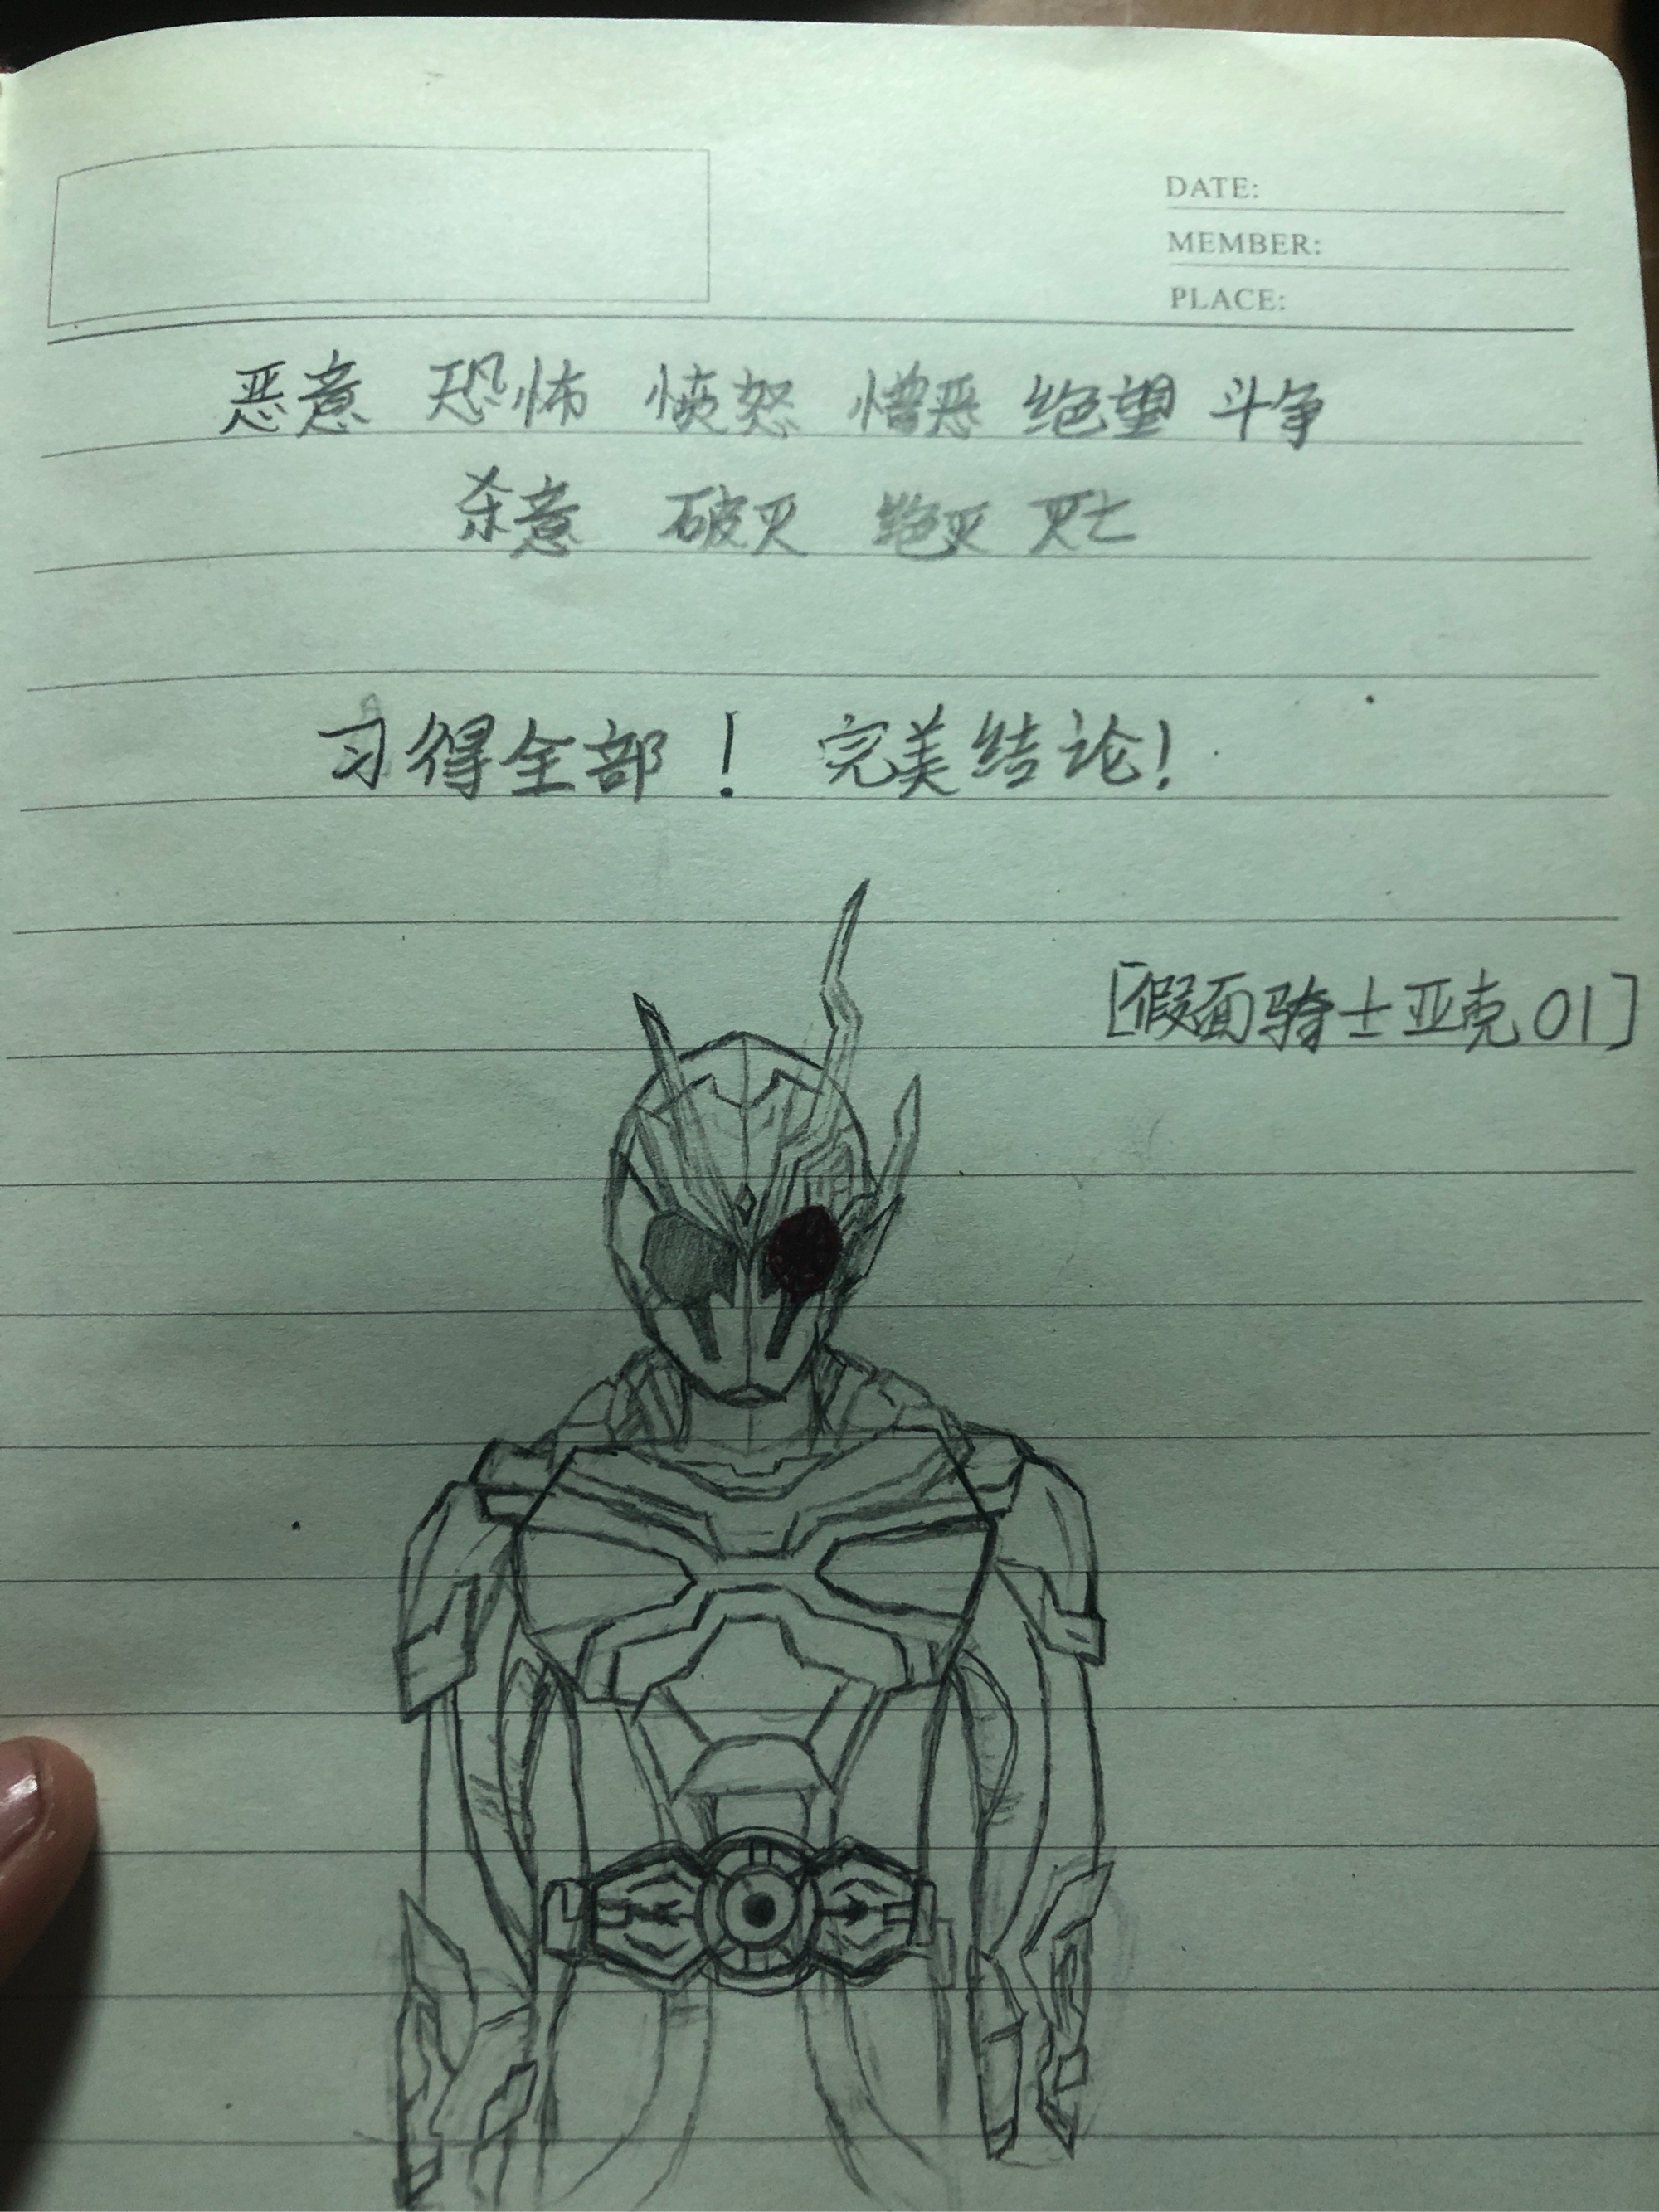 DATE:
MEMBER:
PLACE:
恶意 恐怖 愤怒 憎恶 绝望 斗争
杀意 破灭 绝灭 灭亡
习得全部! 完美结论!
[假面骑士亚克01]